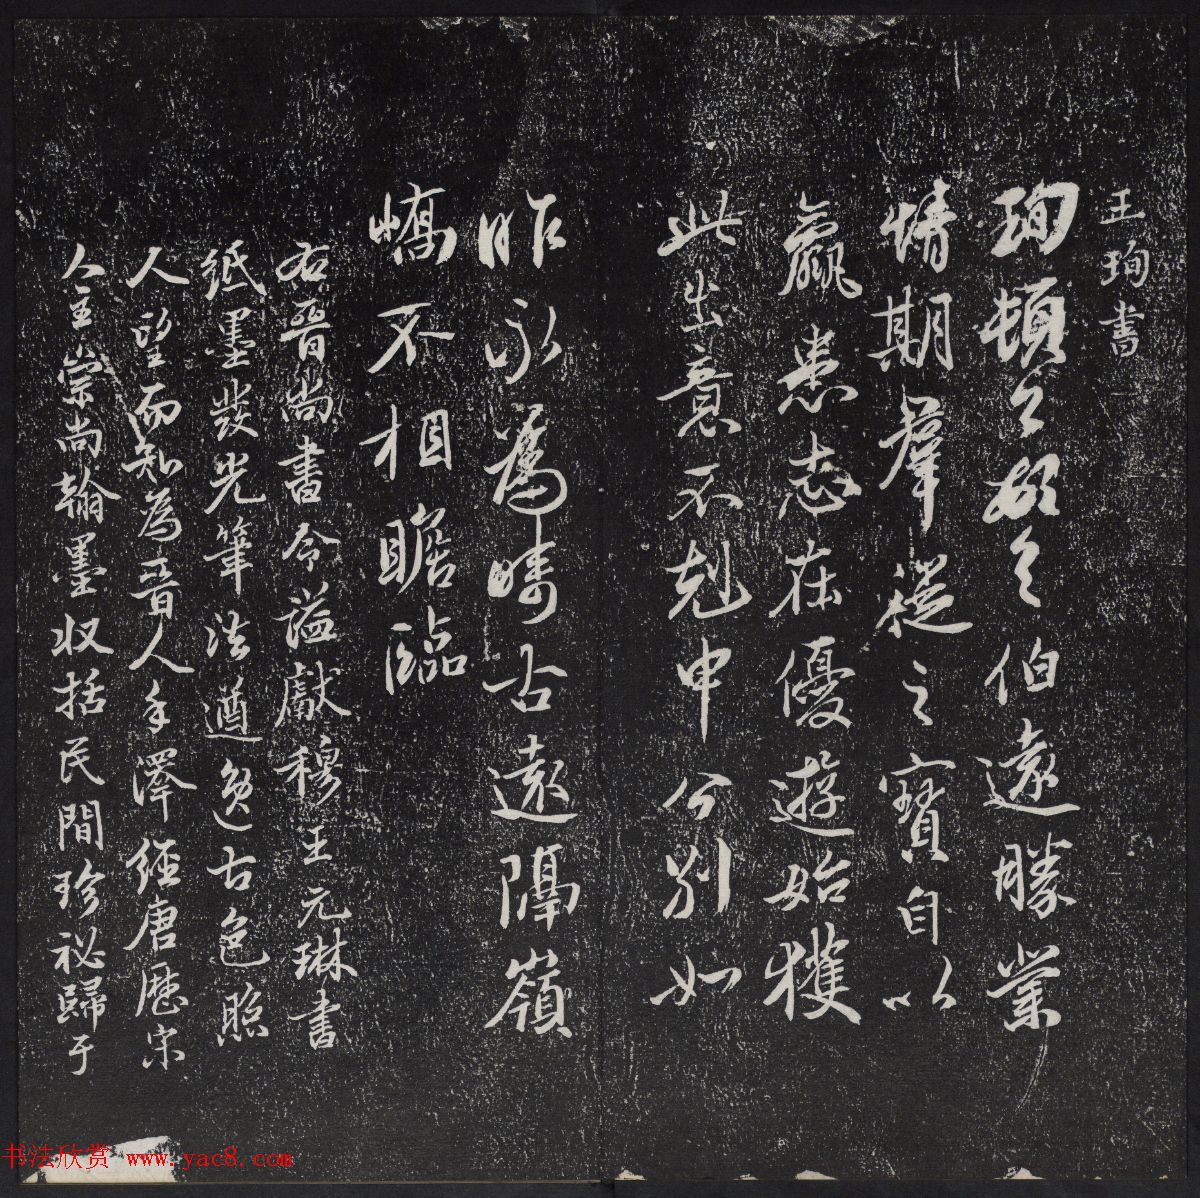 王珣書
珣頓首頓首伯遠勝業
情期群從之寶自以
羸患志在優遊始獲
此出意不剋申分別如
昨永為疇古遠隔嶺
嶠不相瞻臨
右晉尚書令謚獻穆王元琳書
紙墨發光筆法遒逸古色照
人望而知為晉人手澤經唐歷宋
人主崇尚翰墨收括民間珍祕歸于
书法欣赏 www.yac8.com